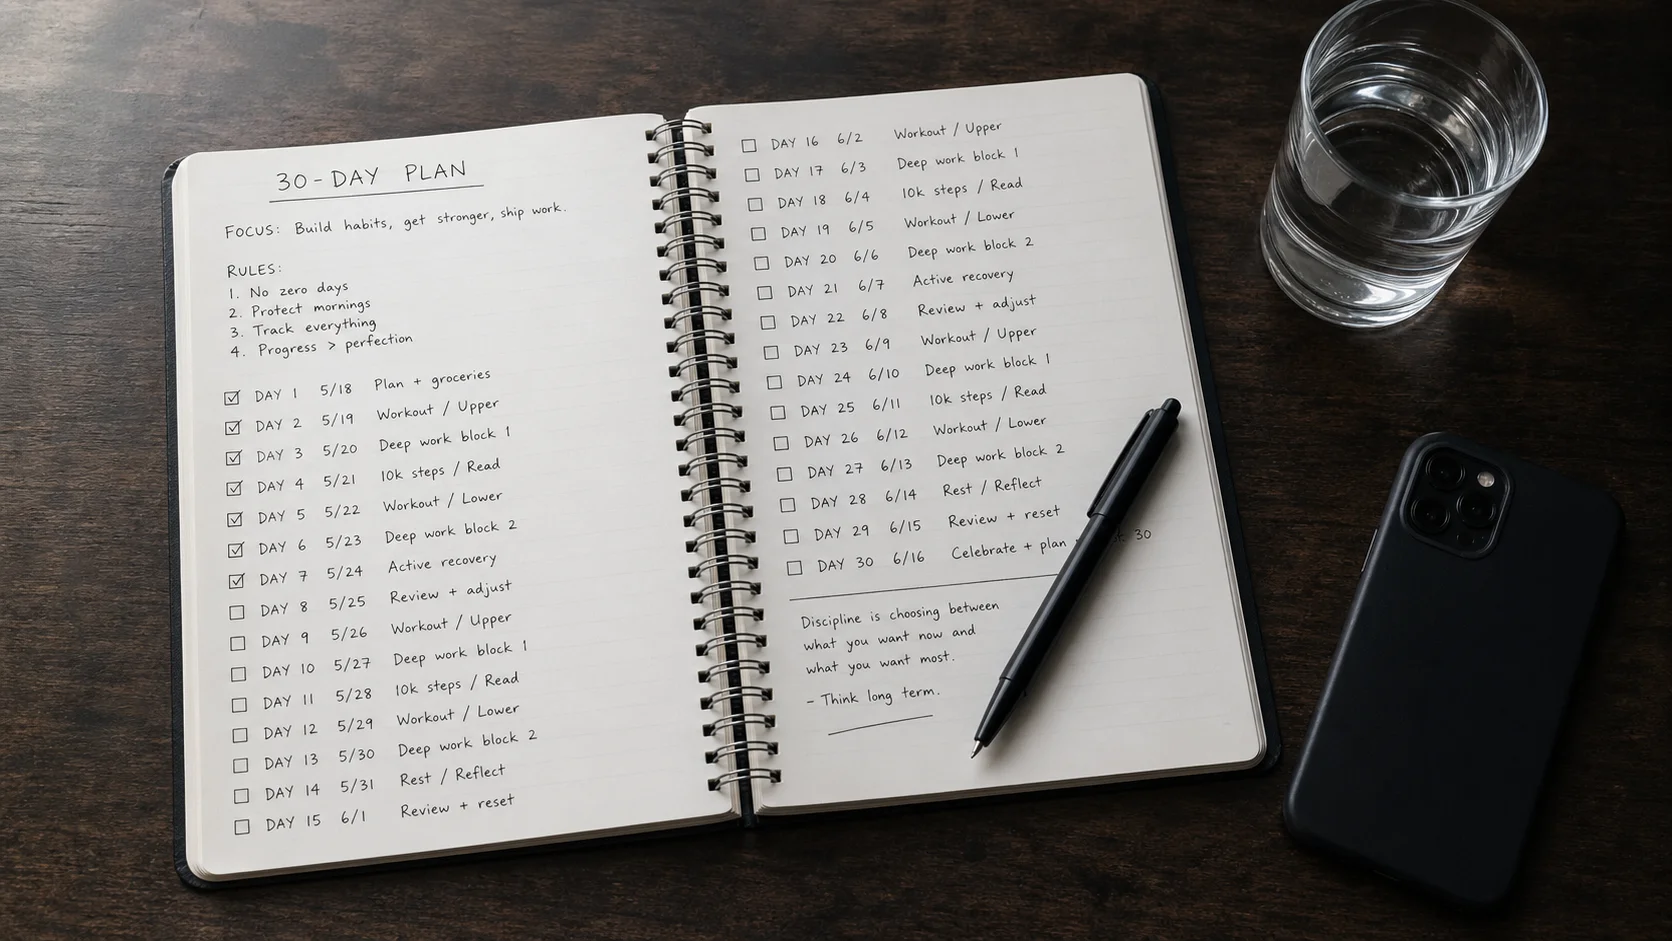 30-DAY PLAN
FOCUS: Build habits, get stronger, ship work.
RULES:
1. No zero days
2. Protect mornings
3. Track everything
4. Progress > perfection
☑ DAY 1 5/18 Plan + groceries
☑ DAY 2 5/19 Workout / Upper
☑ DAY 3 5/20 Deep work block 1
☑ DAY 4 5/21 10k steps / Read
☑ DAY 5 5/22 Workout / Lower
☑ DAY 6 5/23 Deep work block 2
☑ DAY 7 5/24 Active recovery
☐ DAY 8 5/25 Review + adjust
☐ DAY 9 5/26 Workout / Upper
☐ DAY 10 5/27 Deep work block 1
☐ DAY 11 5/28 10k steps / Read
☐ DAY 12 5/29 Workout / Lower
☐ DAY 13 5/30 Deep work block 2
☐ DAY 14 5/31 Rest / Reflect
☐ DAY 15 6/1 Review + reset
☐ DAY 16 6/2 Workout / Upper
☐ DAY 17 6/3 Deep work block 1
☐ DAY 18 6/4 10k steps / Read
☐ DAY 19 6/5 Workout / Lower
☐ DAY 20 6/6 Deep work block 2
☐ DAY 21 6/7 Active recovery
☐ DAY 22 6/8 Review + adjust
☐ DAY 23 6/9 Workout / Upper
☐ DAY 24 6/10 Deep work block 1
☐ DAY 25 6/11 10k steps / Read
☐ DAY 26 6/12 Workout / Lower
☐ DAY 27 6/13 Deep work block 2
☐ DAY 28 6/14 Rest / Reflect
☐ DAY 29 6/15 Review + reset
☐ DAY 30 6/16 Celebrate + plan 30
Discipline is choosing between
what you want now and
what you want most.
- Think long term.